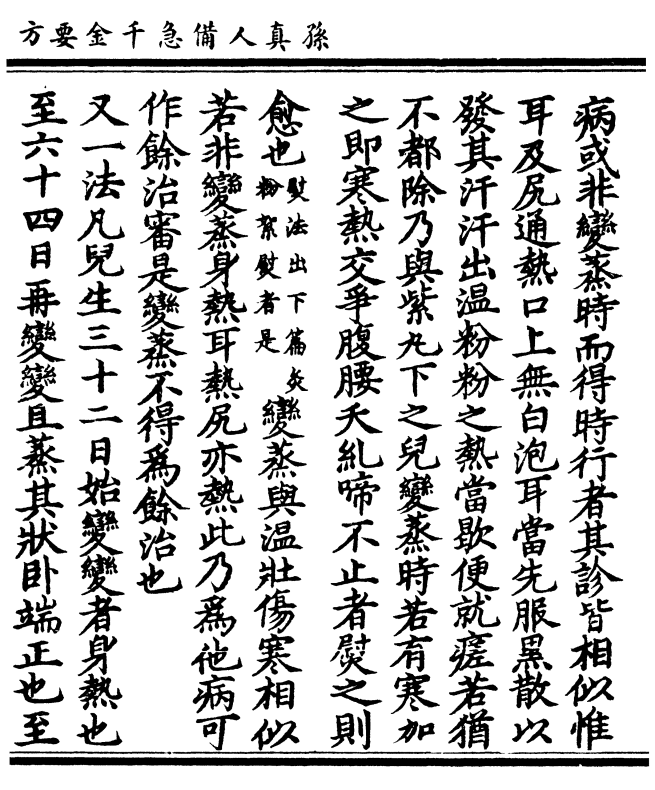 孫真人備急千金要方
病或非變蒸時而得時行者其診皆相似惟
耳及尻通熱口上無白泡耳當先服黑散以
發其汗汗出温粉粉之熱當歇便就瘥若猶
不都除乃與紫丸下之兒變蒸時若有寒加
之即寒熱交爭腹腰夭糺啼不止者熨之則
愈也熨法出下篇炙
粉絮熨者是
變蒸與温壯傷寒相似
若非變蒸身熱耳熱尻亦熱此乃為他病可
作餘治審是變蒸不得為餘治也
又一法凡兒生三十二日始變變者身熱也
至六十四日再變變且蒸其狀卧端正也至